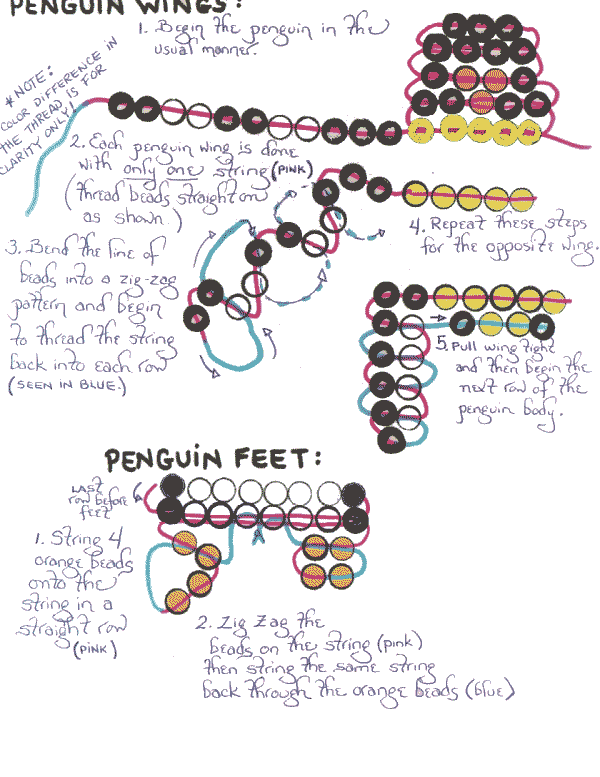 PENGUIN WINGS:
1. Begin the penguin in the
usual manner.
* NOTE:
COLOR DIFFERENCE IN
THE THREAD IS FOR
CLARITY ONLY)
2. Each penguin wing is done
with only one string (PINK)
(thread beads straight on
as shown.)
3. Bend the line of
beads into a zig-zag
pattern and begin
to thread the string
back into each row
(SEEN IN BLUE.)
4. Repeat these steps
for the opposite wing.
5. Pull wing tight
and then begin the
next row of the
penguin body.
PENGUIN FEET:
LAST
row before
feet
1. String 4
orange beads
onto the
string in a
straight row
(PINK)
2. Zig Zag the
beads on the string (pink)
then string the same string
back through the orange beads (blue)